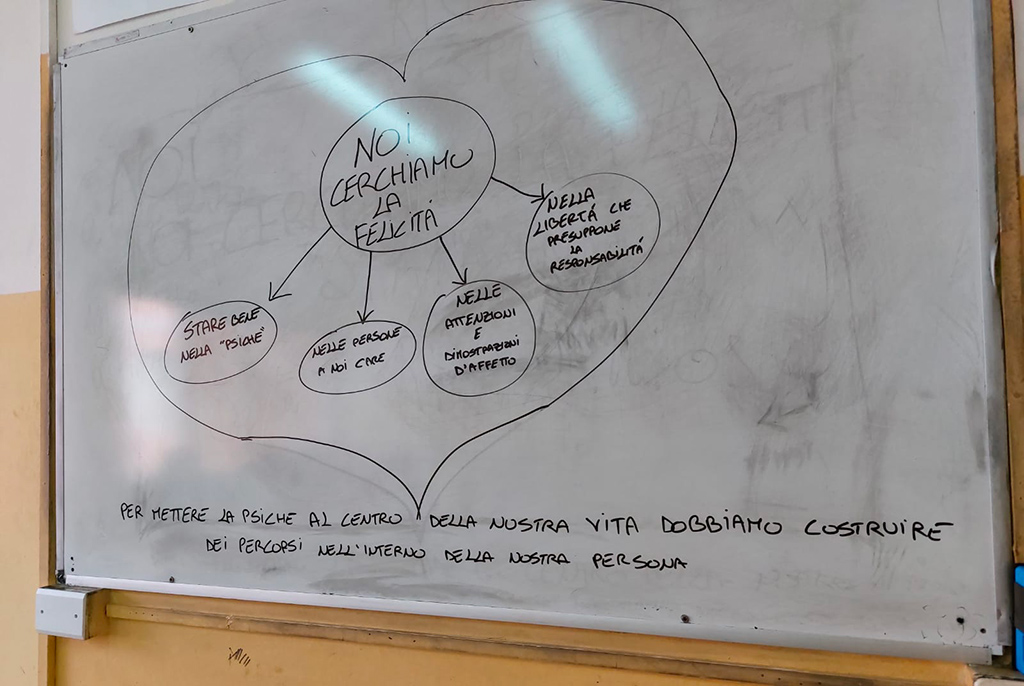 NOi
CERCHIAMO
LA
FELICITÁ
NELLA
LIBERTÁ CHE
PRESUPPONE
LA
RESPONSABILITÁ
STARE BENE
NELLA "PSICHE"
NELLE PERSONE
A NOI CARE
NELLE
ATTENZIONI
E
DIMOSTRAZIONI
D'AFFETTO
PER METTERE LA PSICHE AL CENTRO DELLA NOSTRA VITA DOBBIAMO COSTRUIRE
DEI PERCORSI NELL'INTERNO DELLA NOSTRA PERSONA